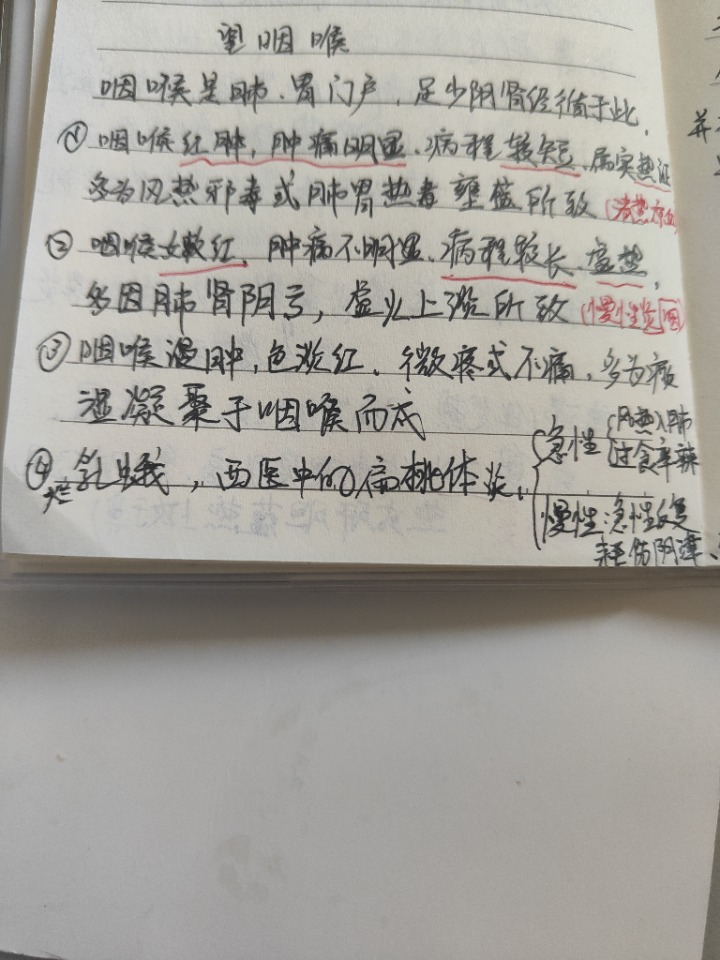 望咽喉
咽喉是肺、胃门户，足少阴肾经循于此，
① 咽喉红肿，肿痛明显、病程较短、属实热证
多为风热邪毒或肺胃热毒壅盛所致（清热凉血
② 咽喉嫩红、肿痛不明显、病程较长、虚热，
多因肺肾阴亏，虚火上炎所致（慢性炎
③ 咽喉漫肿，色淡红、微疼或不痛，多为痰
湿凝聚于咽喉而成
④ 乳蛾，西医中的扁桃体炎，
急性 风热入肺
过食辛辣
慢性：急性反复
伤阴津、